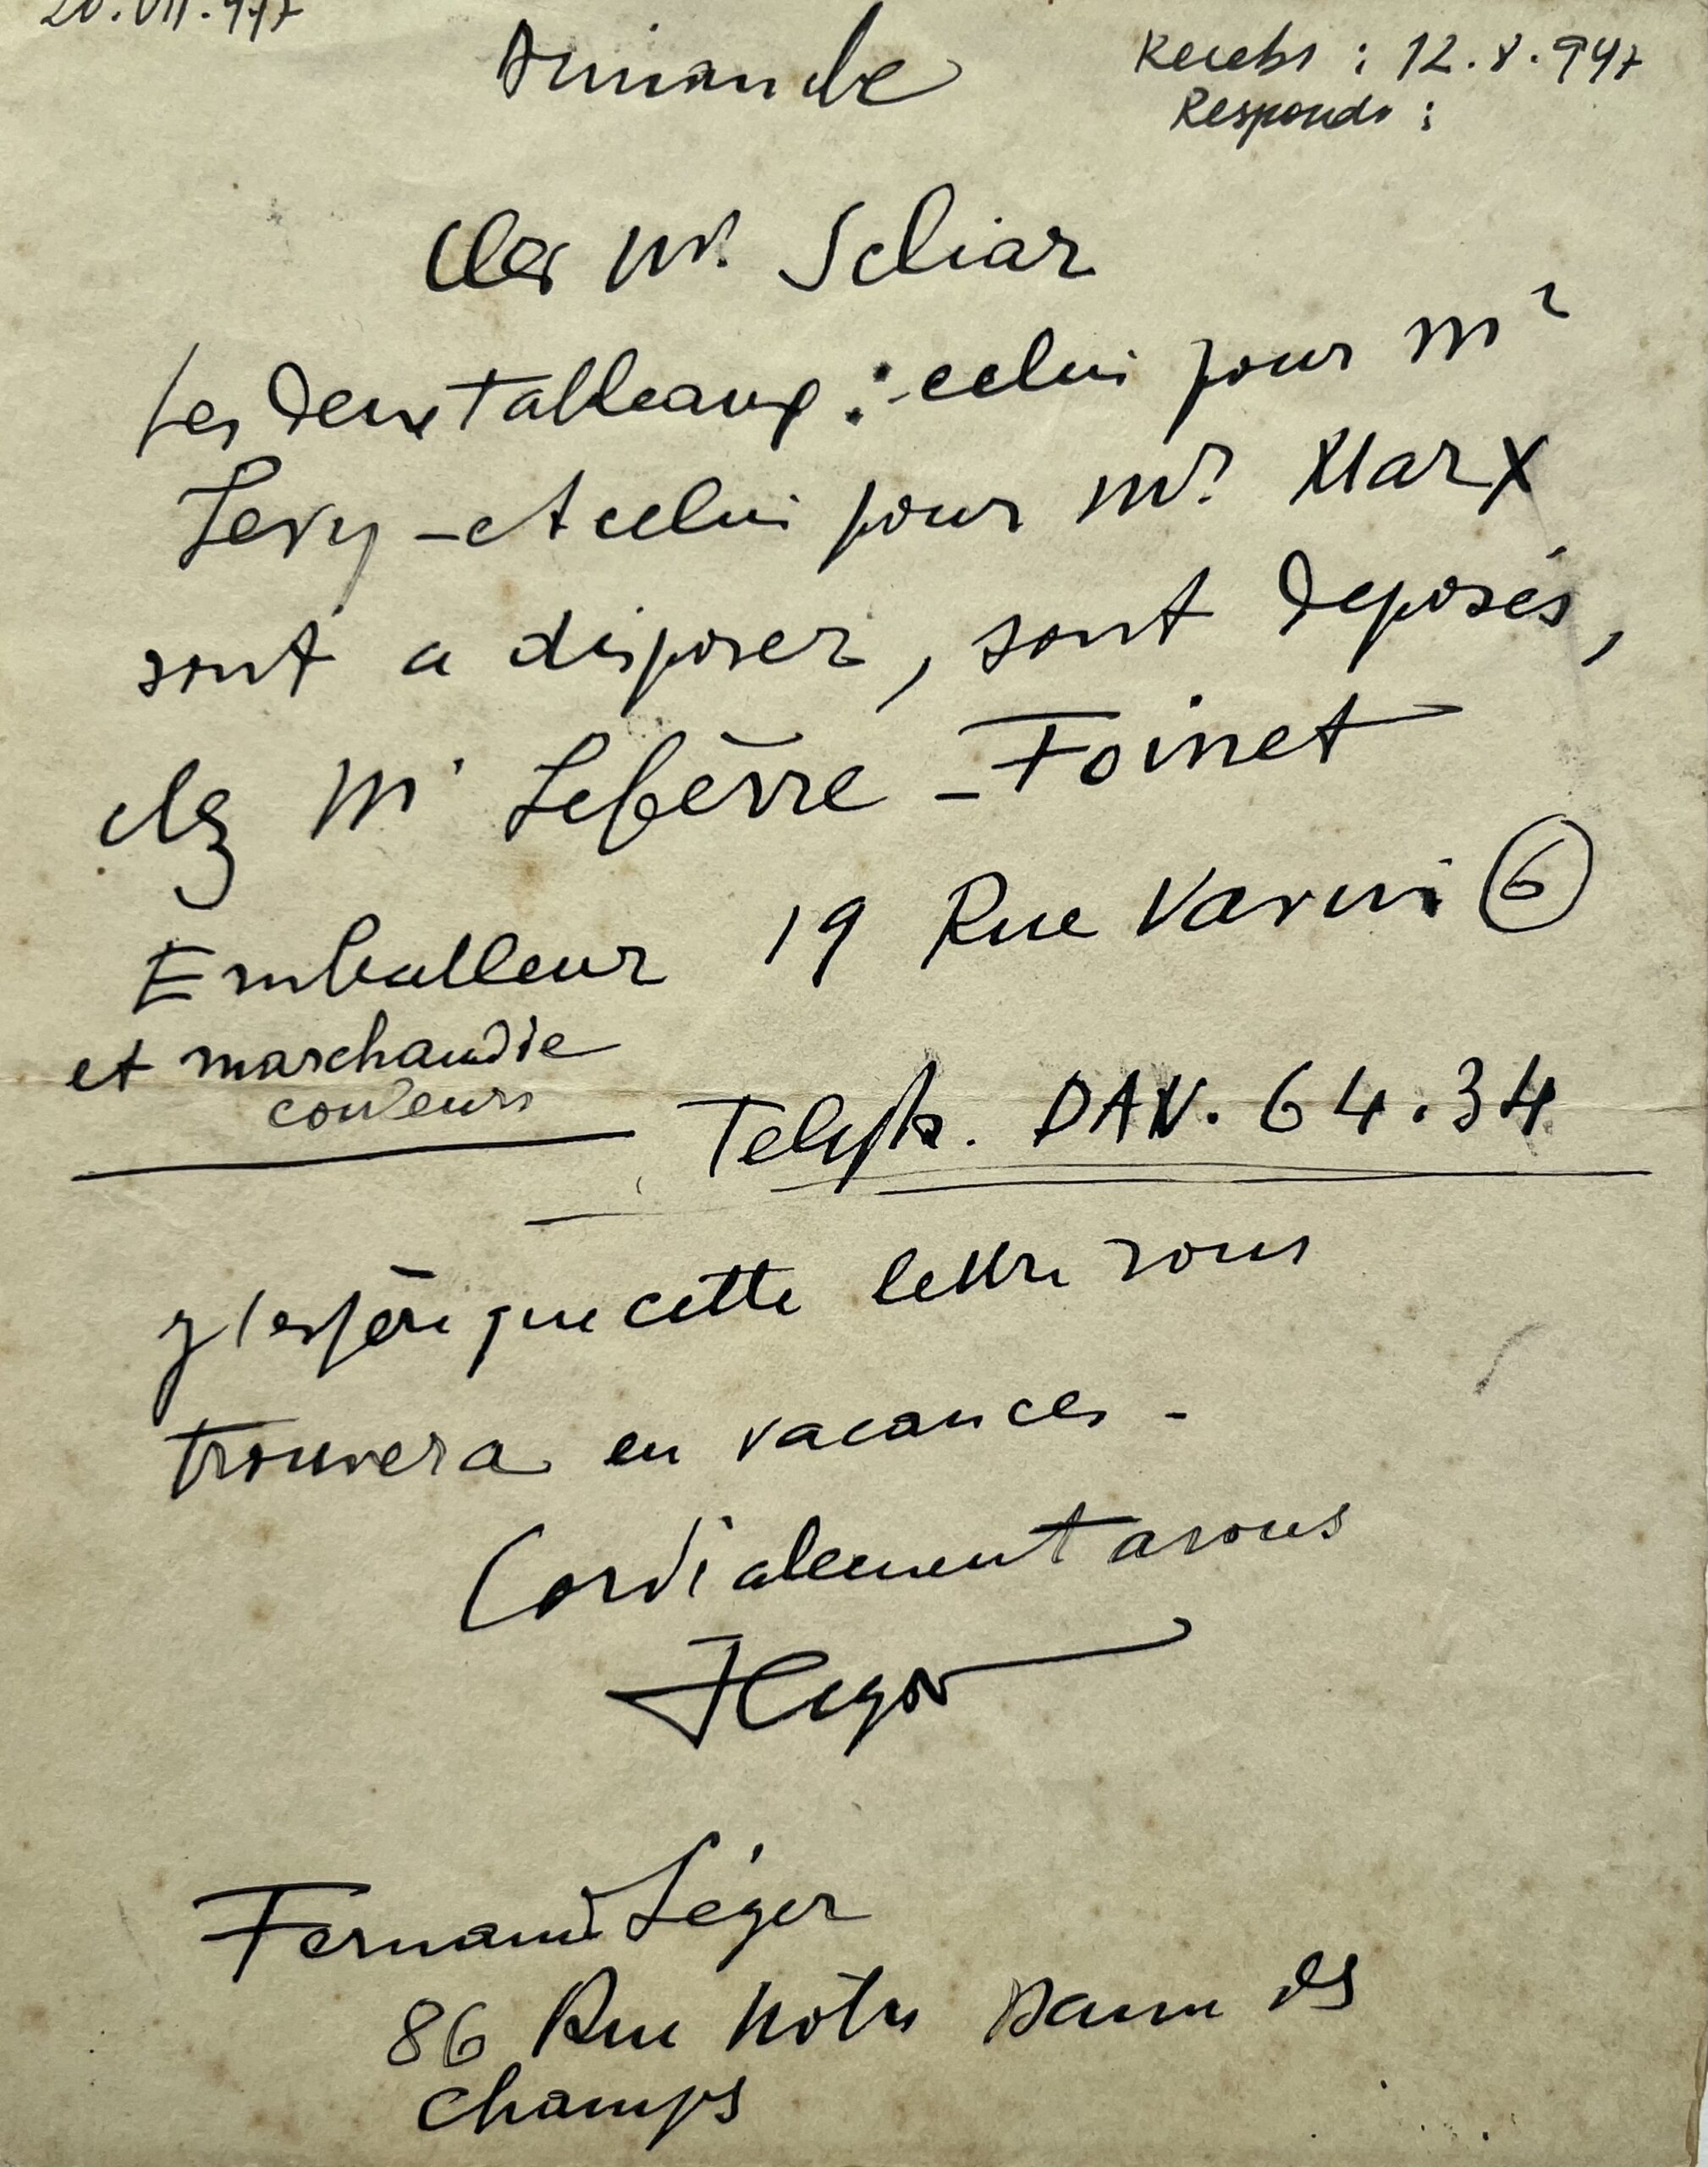 20.VII.947
Dimanche
Recebi : 12.8.947
Respondi :
Cher Mr. Scliar
Les deux tableaux : celui pour Mr
Levy - et celui pour Mr. Marx
sont a disposer, sont deposés,
chez Mr Lefèvre - Foinet
Emballeur 19 Rue Vavin 6
et marchand de
couleurs
Teleph. DAN. 64.34
J'espère que cette lettre vous
trouvera en vacances -
Cordialement a vous
FLeger
Fernand Léger
86 Rue Nôtre Dame des
champs